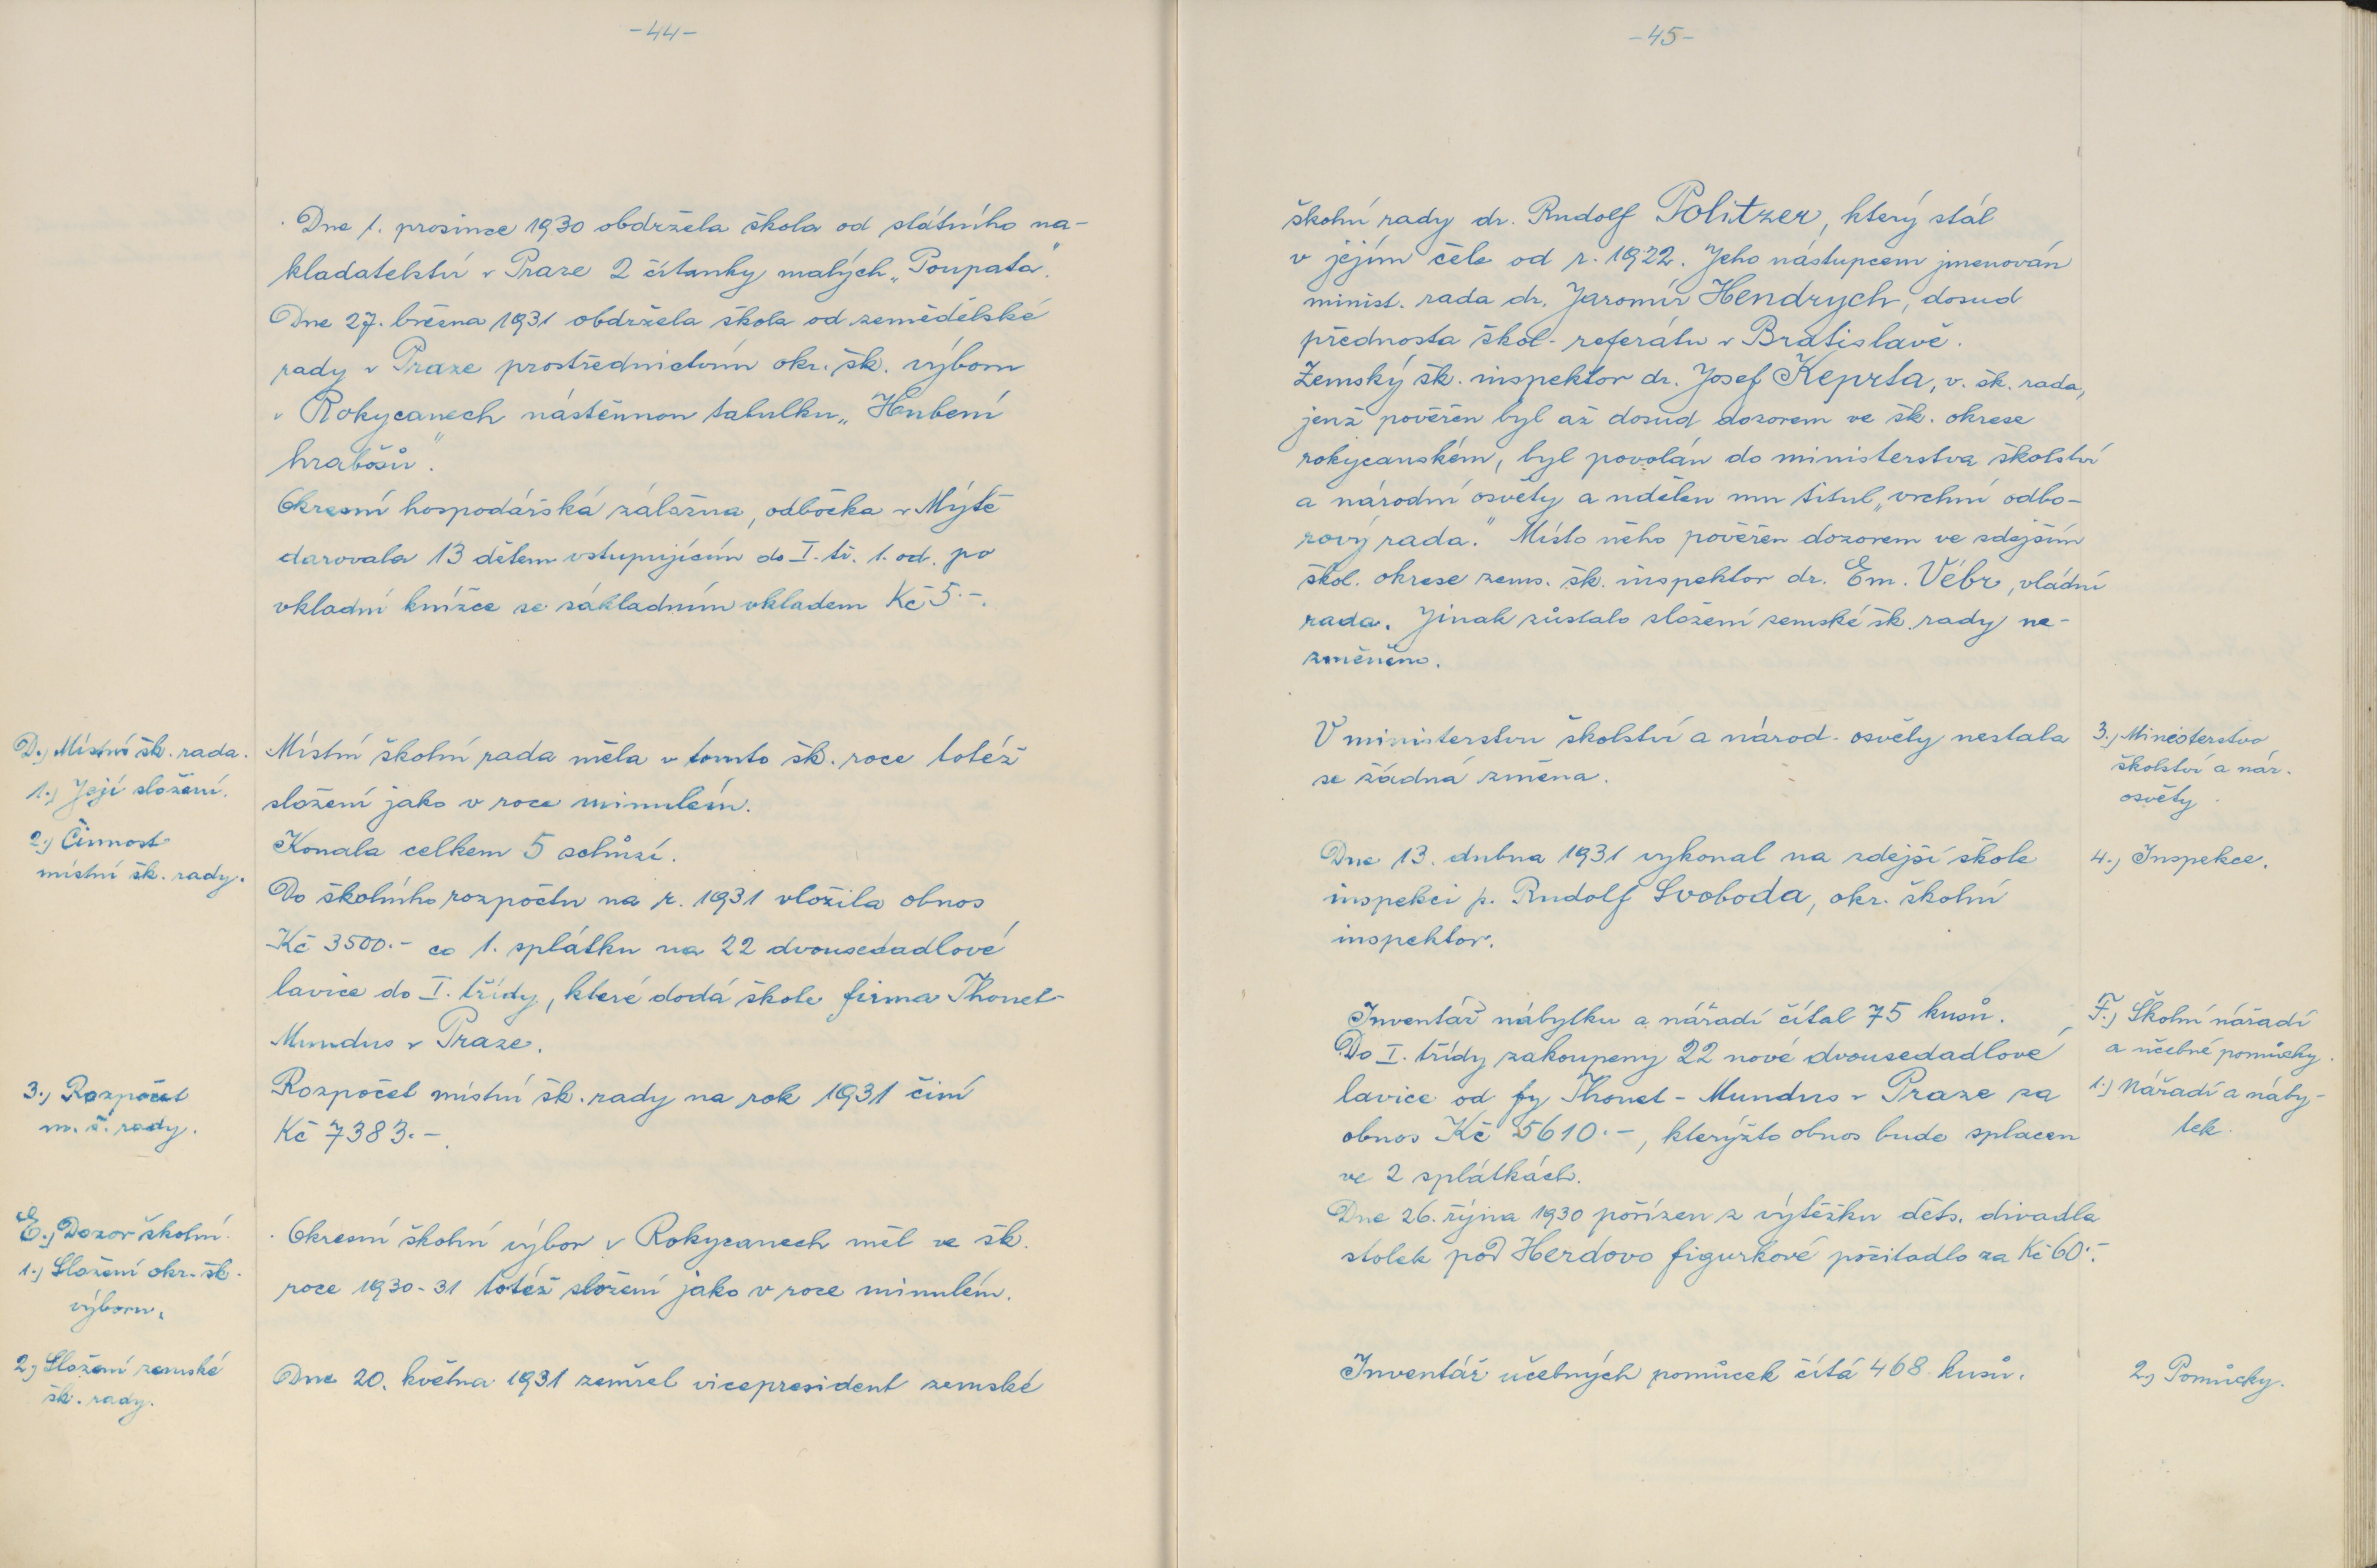 -44-
Dne 1. prosince 1930 obdržela škola od státního na-
kladatelství v Praze 2 čítanky malých „Poupata".
Dne 27. března 1931 obdržela škola od zemědělské
rady v Praze prostřednictvím okr. šk. výboru
v Rokycanech nástěnnou tabulku „Hubení
hrabošů".
Okresní hospodářská záložna, odbočka v Mýtě
darovala 13 dětem vstupujícím do I. tř. 1. od. po
vkladní knížce se základním vkladem Kč 5.-.
D.) Místní šk. rada.
1.) Její složení.
Místní školní rada měla v tomto šk. roce totéž
složení jako v roce minulém.
2.) Činnost
místní šk. rady.
Konala celkem 5 schůzí.
Do školního rozpočtu na r. 1931 vložila obnos
Kč 3500.- co 1. splátku na 22 dvousedadlové
lavice do I. třídy, které dodá škole firma Thonet-
Mundus v Praze.
3.) Rozpočet
m. š. rady.
Rozpočet místní šk. rady na rok 1931 činí
Kč 7383.-.
E.) Dozor školní.
1.) Složení okr. šk.
výboru.
Okresní školní výbor v Rokycanech měl ve šk.
roce 1930-31 totéž složení jako v roce minulém.
2.) Složení zemské
šk. rady.
Dne 20. května 1931 zemřel vicepresident zemské
-45-
školní rady dr. Rudolf Politzer, který stál
v jejím čele od r. 1922. Jeho nástupcem jmenován
minist. rada dr. Jaromír Hendrych, dosud
přednosta škol. referátu v Bratislavě.
Zemský šk. inspektor dr. Josef Keprta, v. šk. rada,
jenž pověřen byl až dosud dozorem ve šk. okrese
rokycanském, byl povolán do ministerstva školství
a národní osvěty a udělen mu titul „vrchní odbo-
rový rada." Místo něho pověřen dozorem ve zdejším
škol. okrese zems. šk. inspektor dr. Em. Vébr, vládní
rada. Jinak zůstalo složení zemské šk. rady ne-
změněno.
V ministerstvu školství a národ. osvěty nestala
se žádná změna.
3.) Ministerstvo
školství a nár.
osvěty.
Dne 13. dubna 1931 vykonal na zdejší škole
inspekci p. Rudolf Svoboda, okr. školní
inspektor.
4.) Inspekce.
Inventář nábytku a nářadí čítal 75 kusů.
Do I. třídy zakoupeny 22 nové dvousedadlové
lavice od fy Thonet - Mundus v Praze za
obnos Kč 5610.-, kterýžto obnos bude splacen
ve 2 splátkách.
Dne 26. října 1930 pořízen z výtěžku děts. divadla
stolek pod Herdovo figurkové počitadlo za Kč 60.-.
F.) Školní nářadí
a učebné pomůcky.
1.) Nářadí a náby-
tek.
Inventář učebných pomůcek čítá 468 kusů.
2.) Pomůcky.